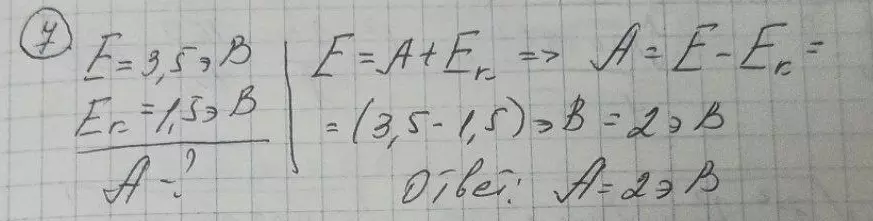 7
E = 3,5 эВ
Eк = 1,5 эВ
A - ?
E = A + Eк => A = E - Eк =
= (3,5 - 1,5) эВ = 2 эВ
Ответ: A = 2 эВ